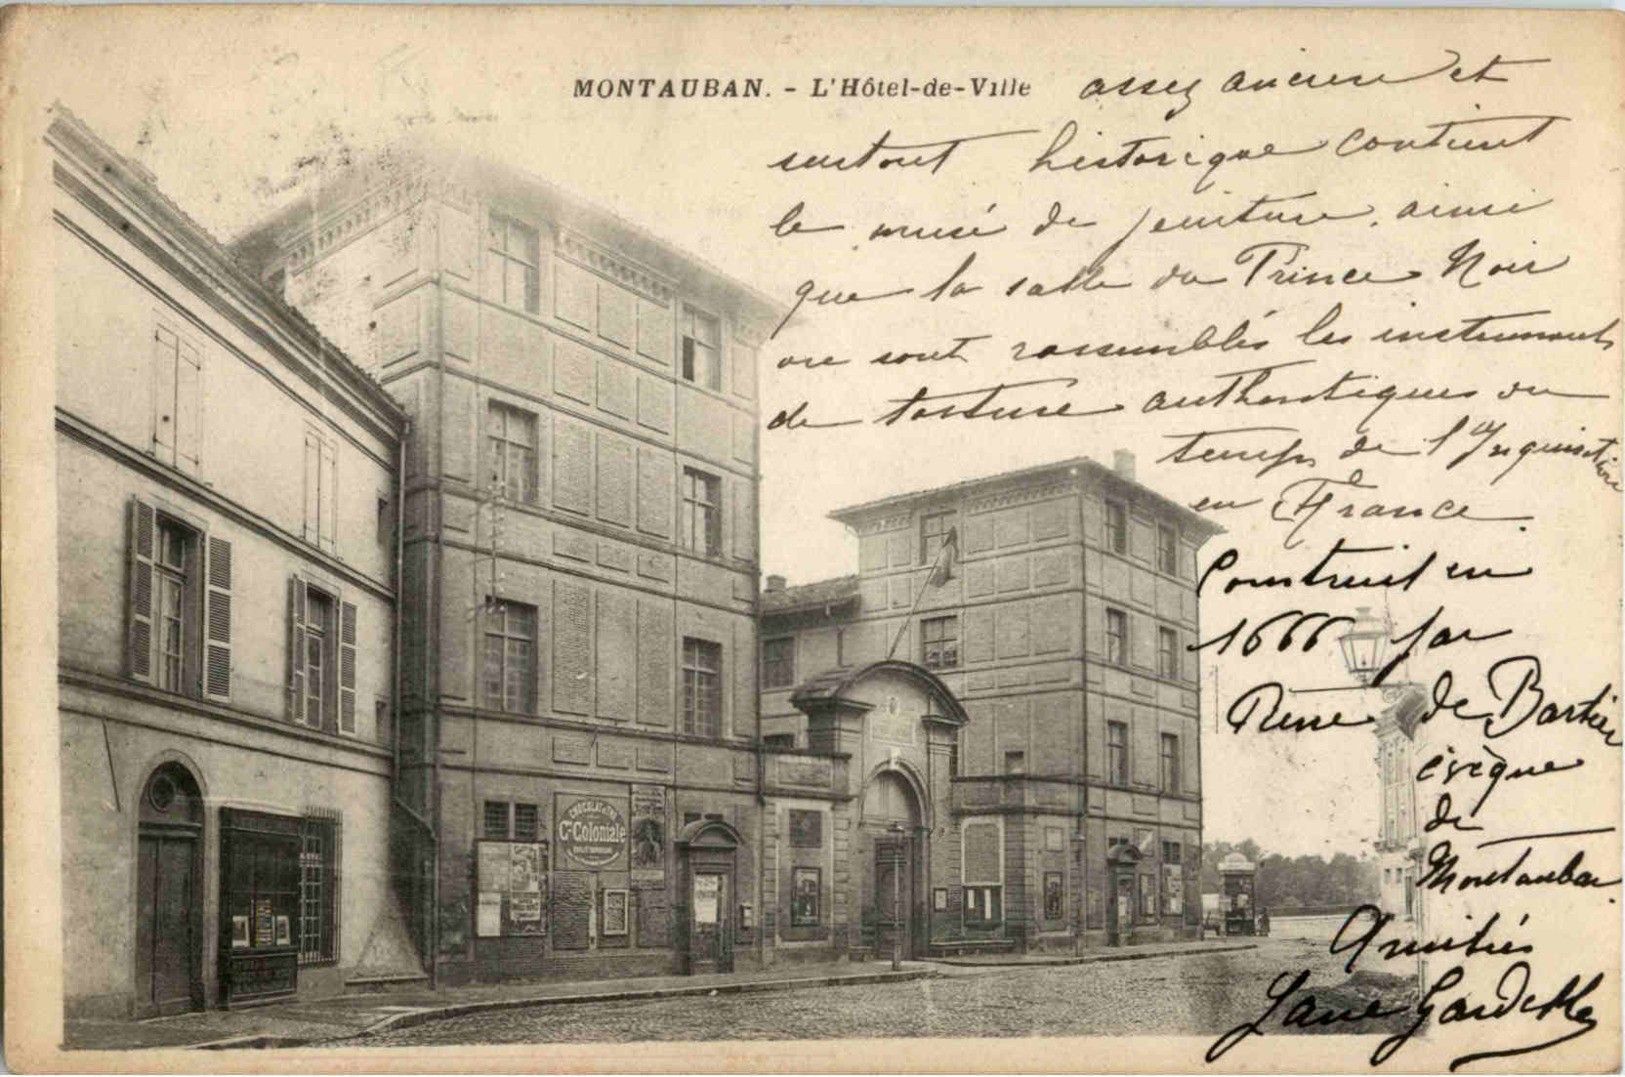 MONTAUBAN. - L'Hôtel-de-Ville assez ancien et
surtout historique contient
le musé de peinture, ainsi
que la salle du Prince Noir
ou sont rassemblés les instruments
de torture authentiques du
temps de l'Inquisition
en France.
Construit en
1666 par
René de Bertier
évêque
de
Montauban.
Amitiés
Jane Gardelle
CHOCOLAT
Cie Coloniale
HOTEL